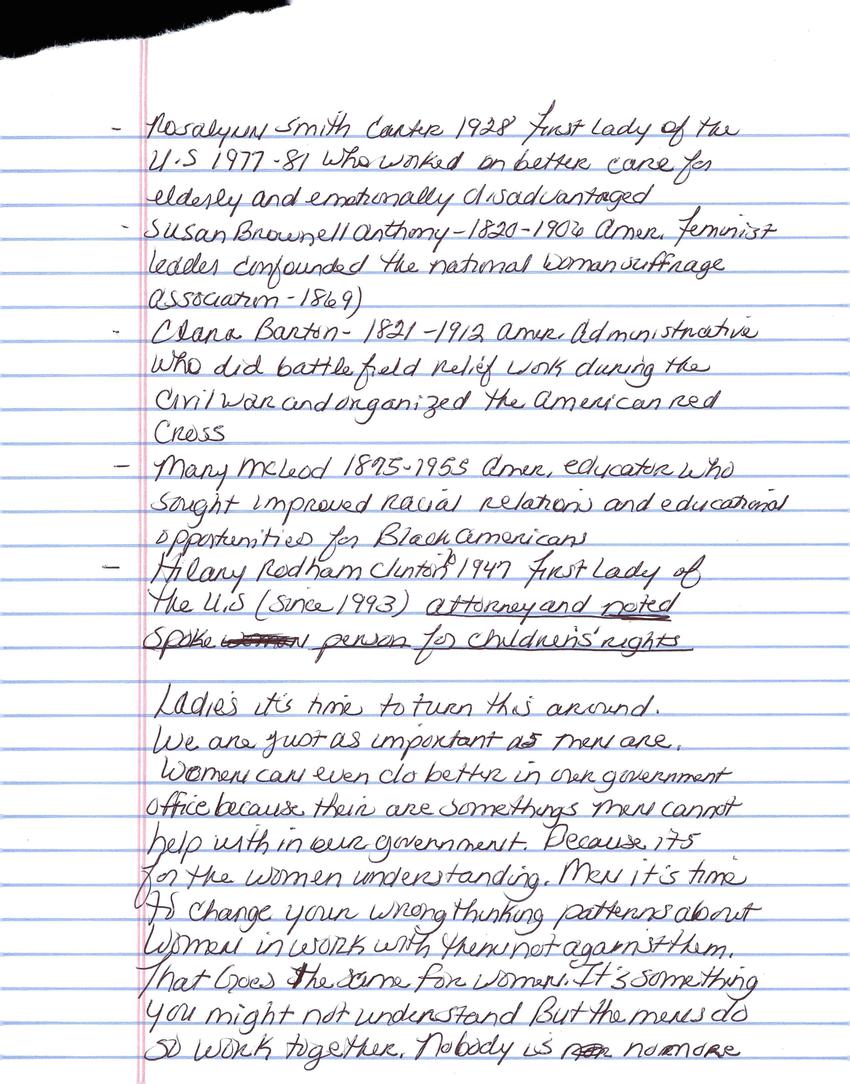 - Rosalynn Smith Carter 1928 First Lady of the
U.S 1977-81 who worked on better care for
elderly and emotionally disadvantaged
- Susan Brownell Anthony-1820-1906 Amer. Feminist
leader confounded the national woman suffrage
association-1869)
- Clara Barton- 1821-1912 Amer. Administrative
who did battlefield relief work during the
Civil War and organized the American red
Cross
- Mary McLeod 1875-1955 Amer. educator who
sought improved racial relations and educational
opportunities for Black Americans
- Hilary Rodham Clinton 1947 First Lady of
the U.S (since 1993) attorney and noted
spoke person for childrens' rights
Ladie's it's time to turn this around.
We are just as important as men are.
Women can even do better in our government
office because their are somethings men cannot
help with in our government. Because its
for the women understanding. Men it's time
to change your wrong thinking patterns about
women in work with them not against them.
That Goes the same for women. It's something
you might not understand But the mens do
so work together. Nobody is no more